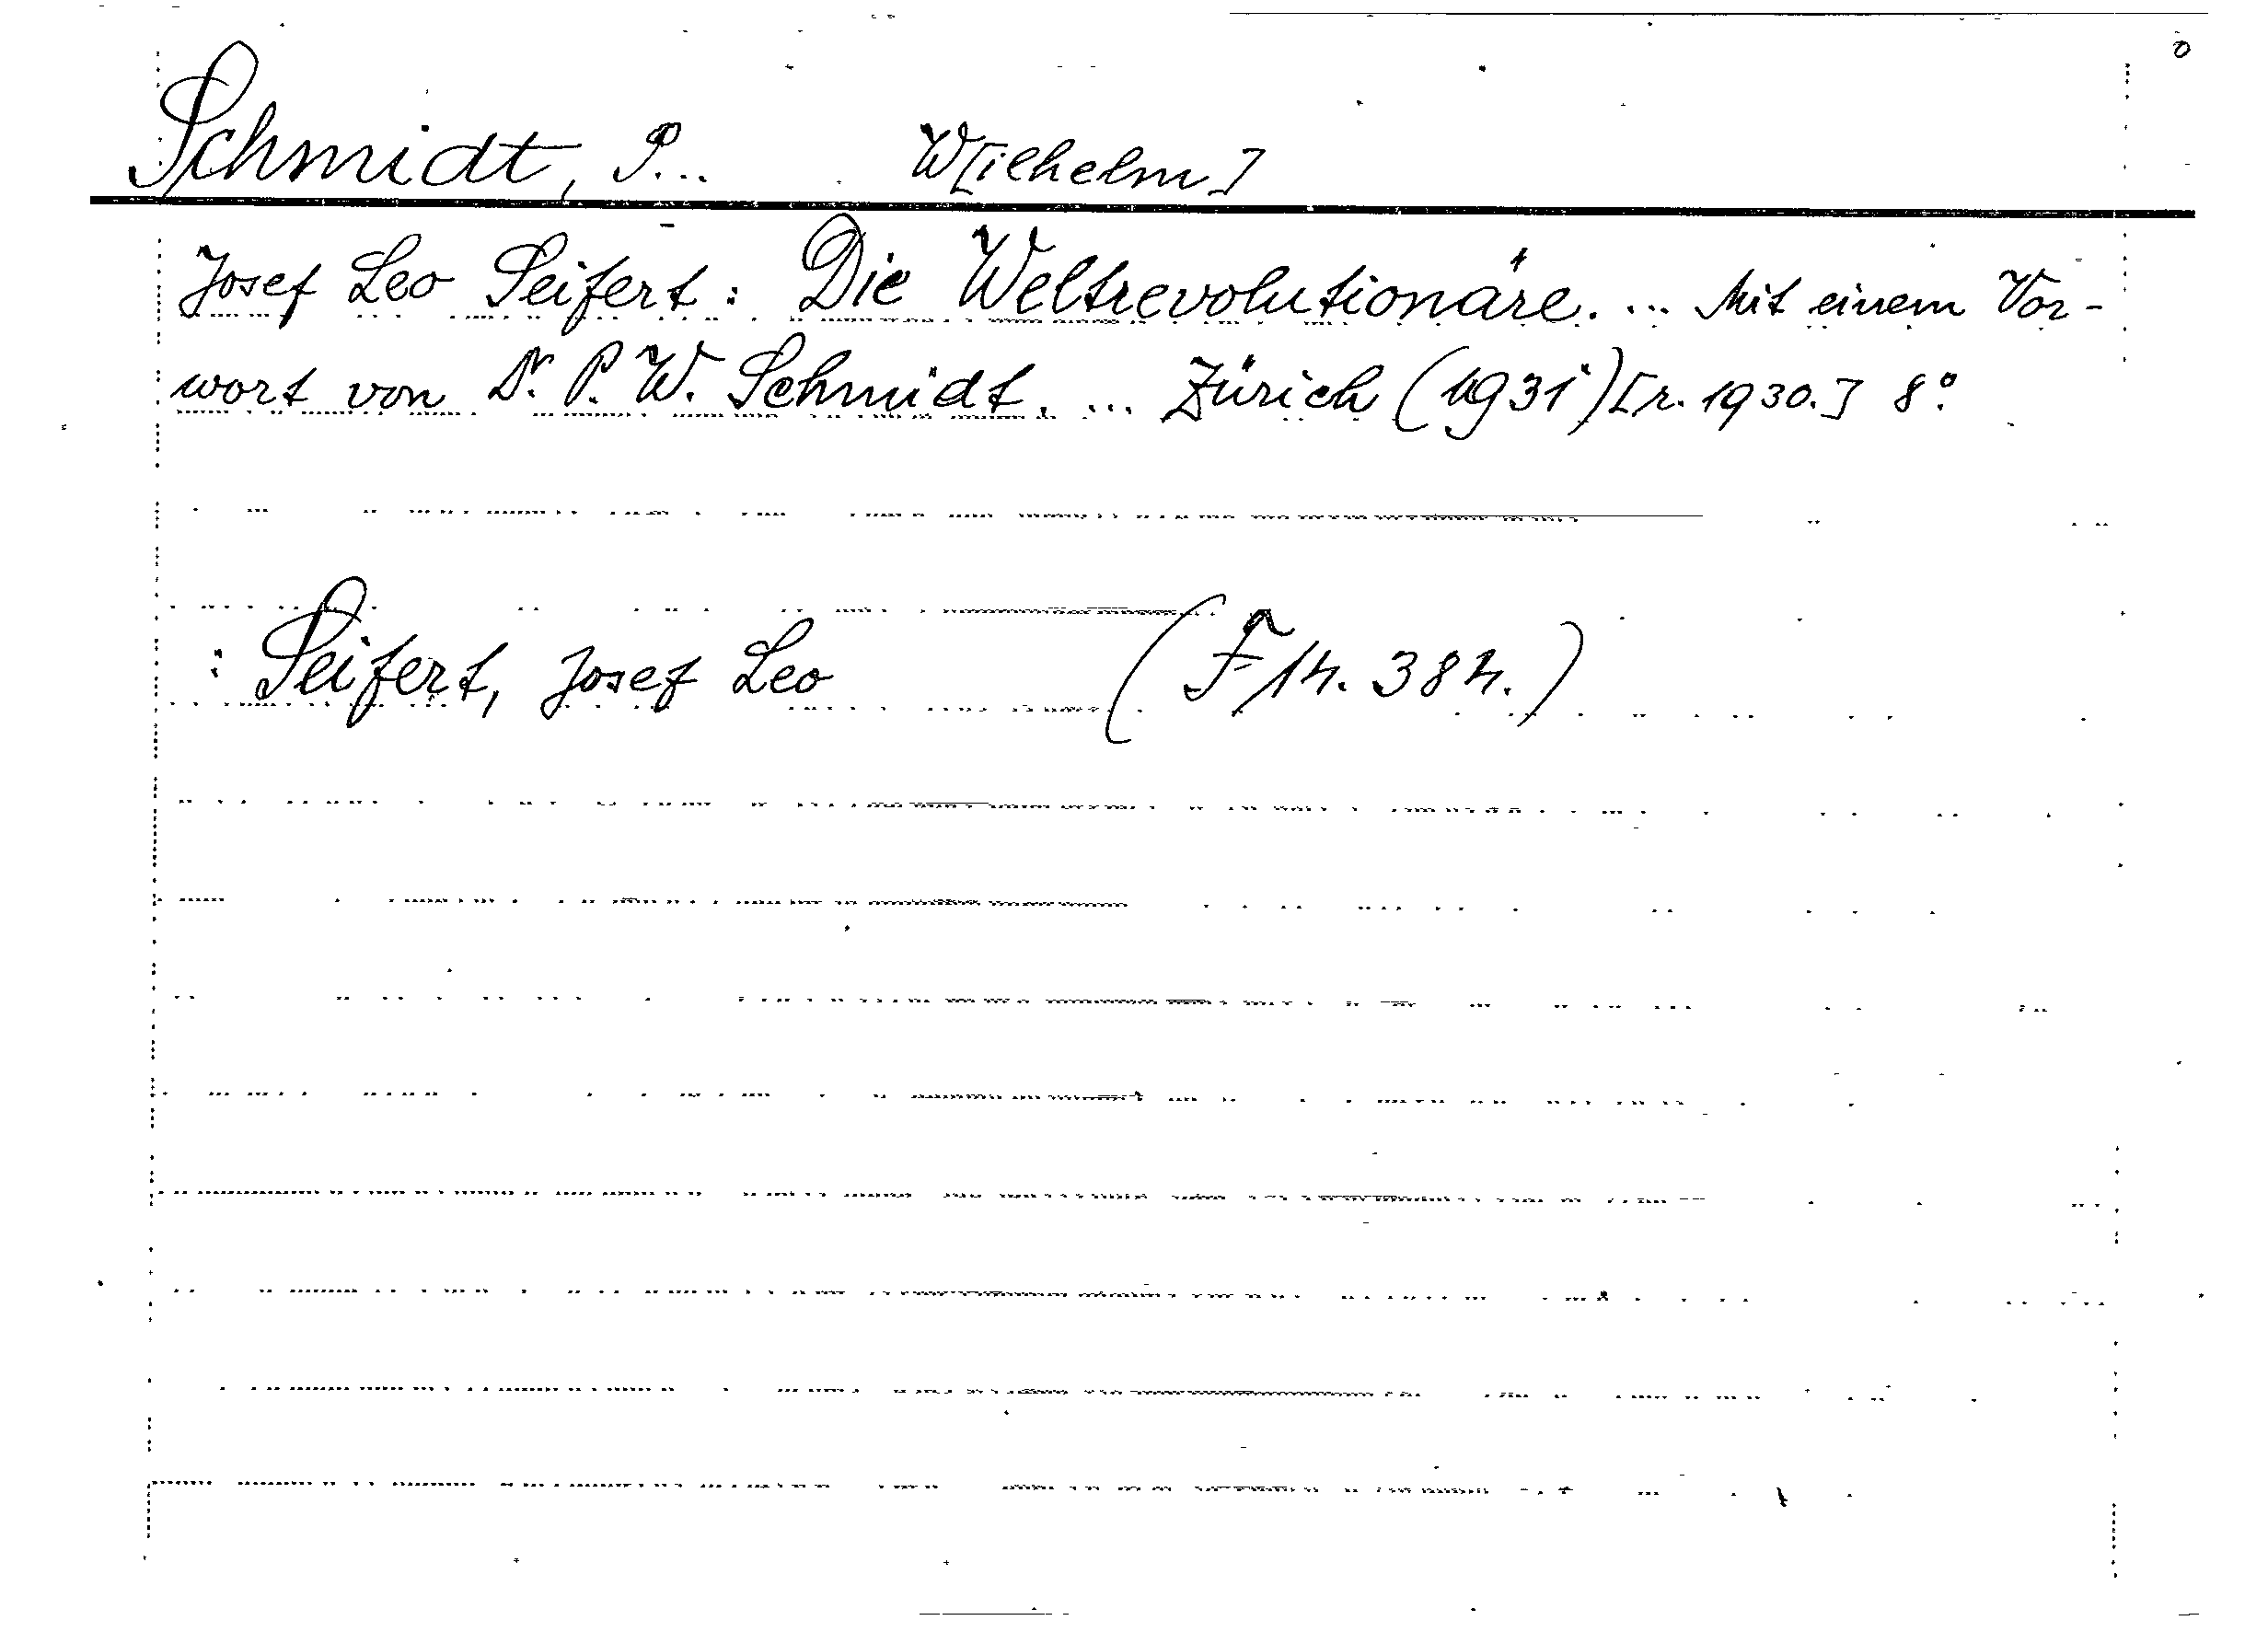 Schmidt, P... W[ilhelm]
Josef Leo Seifert: Die Weltrevolutionäre. ... Mit einem Vor-
wort von Dr. P. W. Schmidt. ... Zürich (1931) [r. 1930.] 8°.
: Seifert, Josef Leo (F 14. 384.)